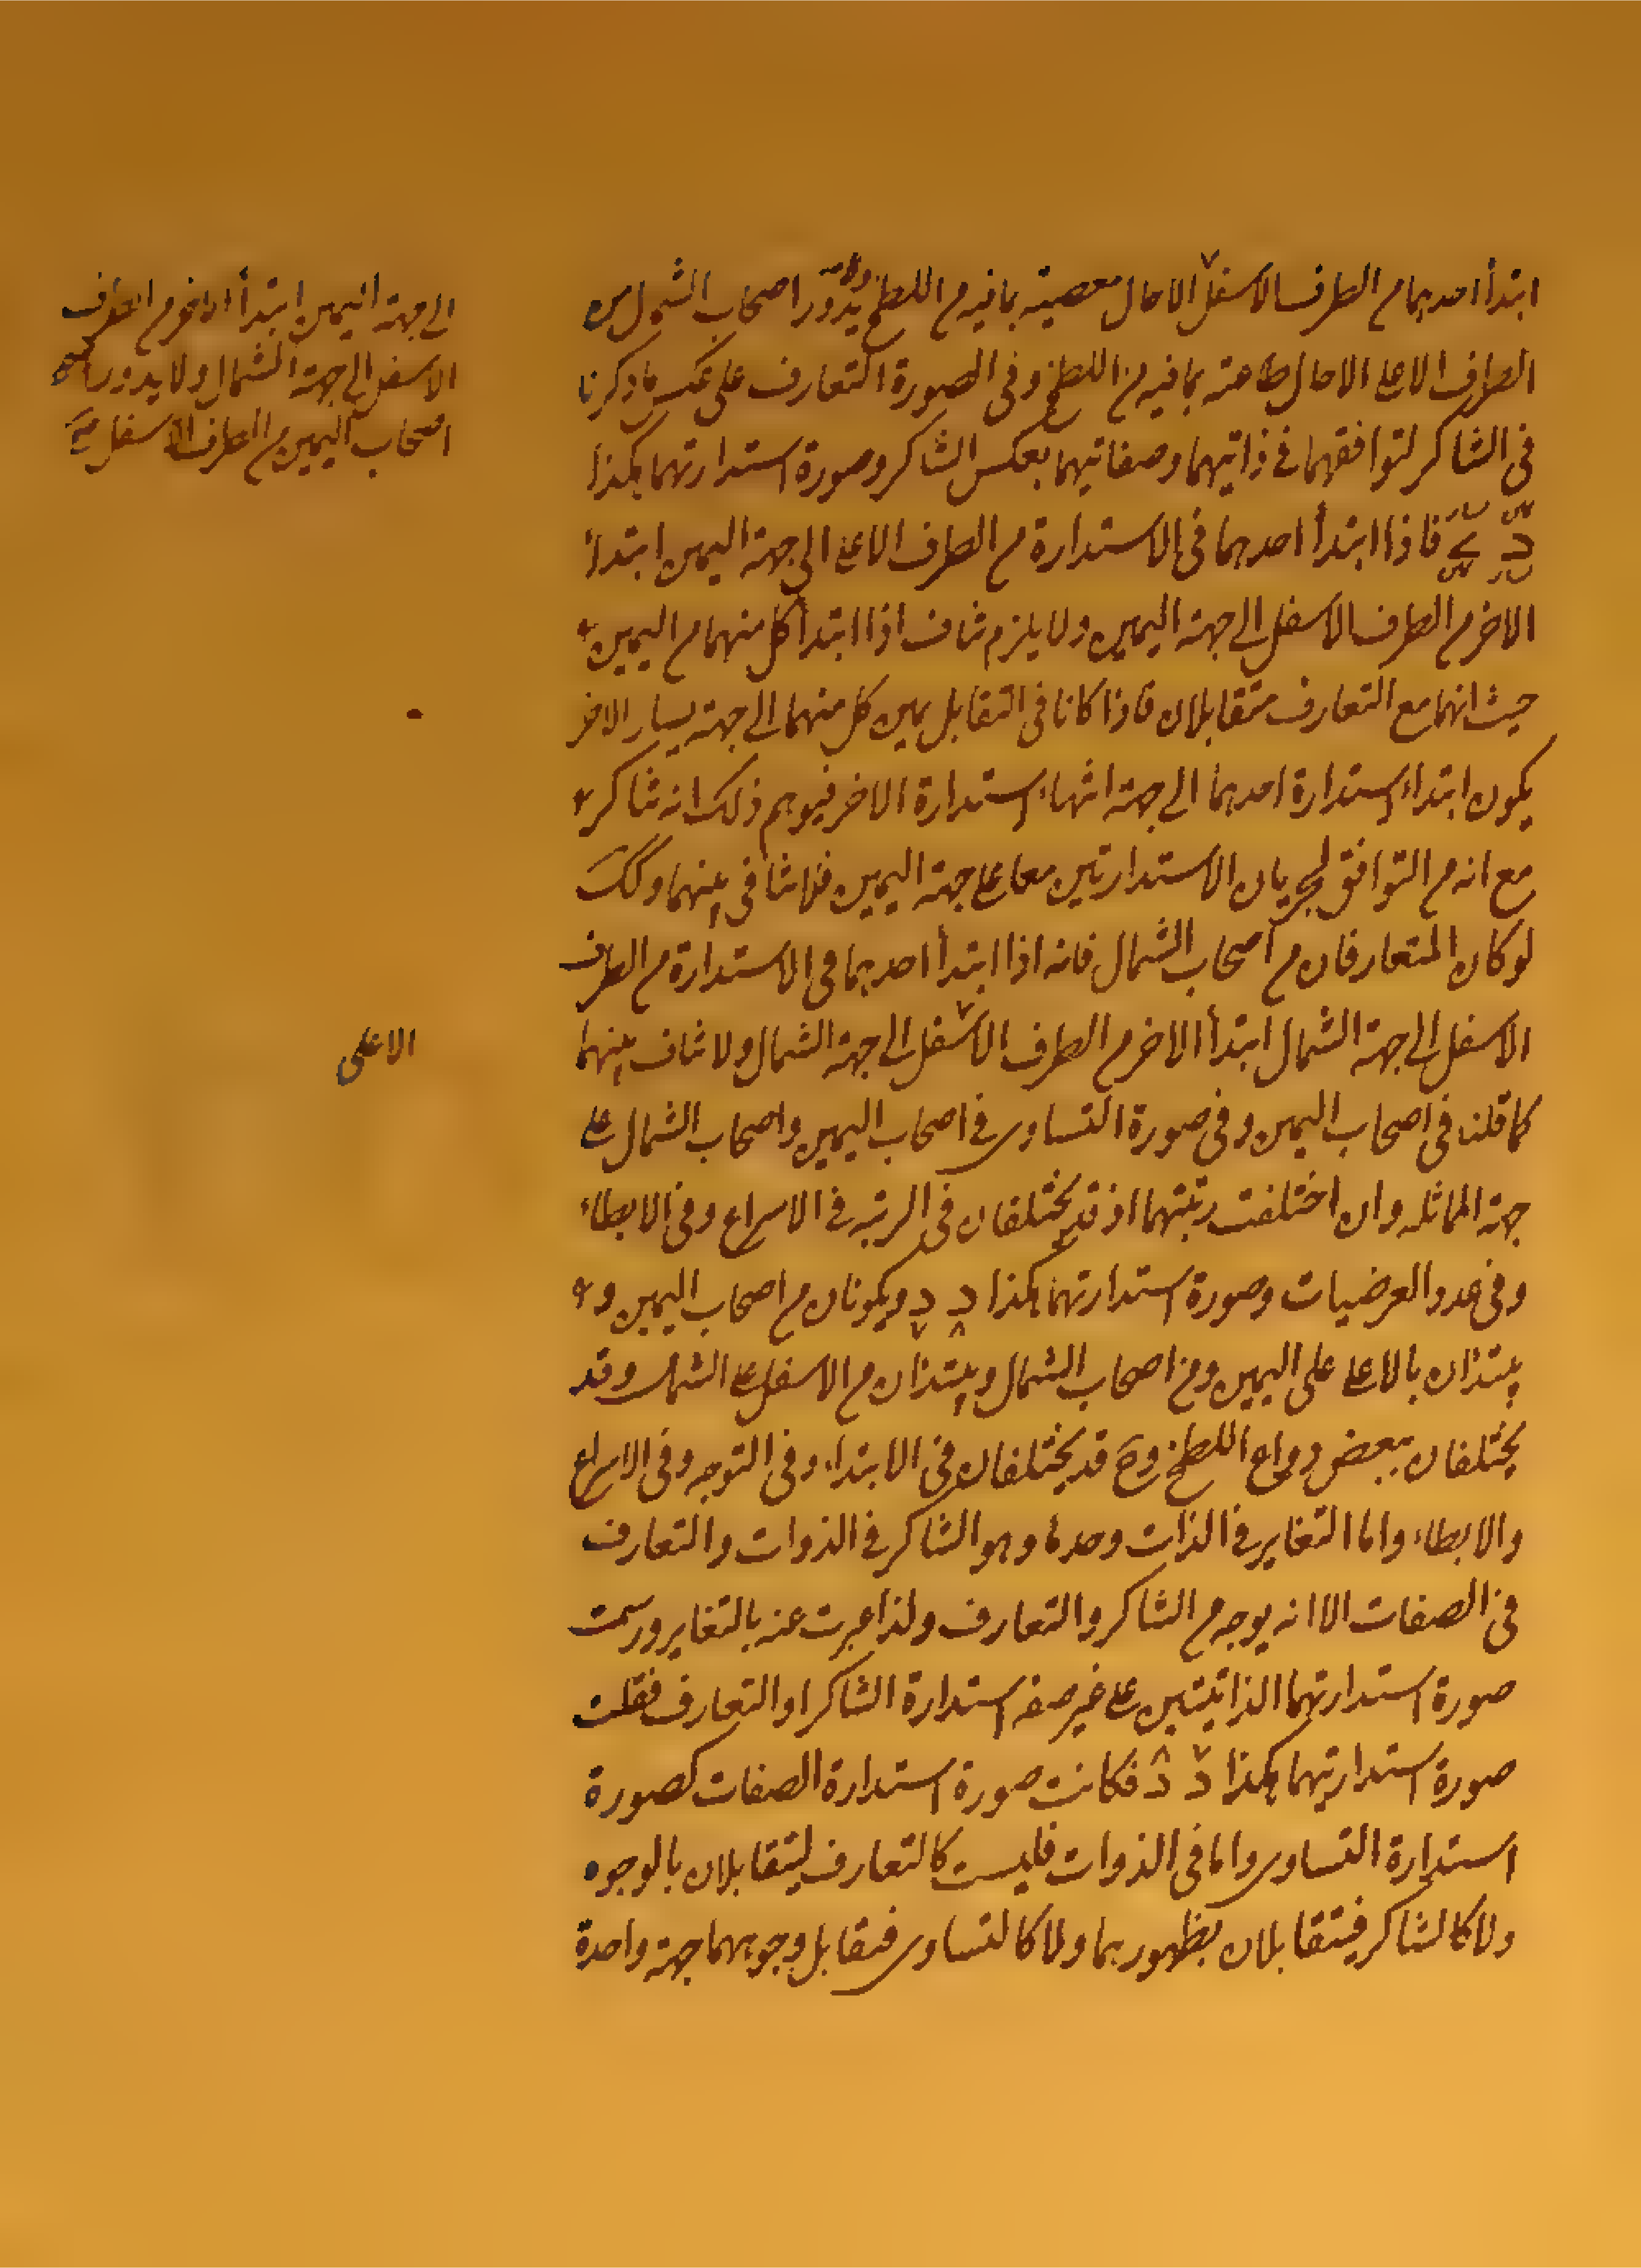 ابتدأ احدهما م الطرف الاسفل الا حال معصيته بما فيه م اللطخ ولا يدور اصحاب الشمال من
الطرف الاعلى الا حال طاعته بما فيه من اللطخ وفى الصورة التعارف على عكس ما ذكرنا
فى التناكر لتوافقهما فى ذاتيهما وصفاتيهما بعكس التناكر وصورة استدارتهما هكذا
فاذا ابتدأ احدهما فى الاستدارة م الطرف الاعلى الى جهة اليمين ابتدأ
الاخر م الطرف الاسفل الى جهة اليمين ولا يلزم تناف اذا ابتدأ كل منهما م اليمين
حيث انهما مع التعارف متقابلان فاذا كانا فى التقابل يمين كل منهما الى جهة يسار الاخر
يكون ابتداء استدارة احدهما الى جهة انتهاء استدارة الاخر فيوهم ذلك انه تناكر
مع انه م التوافق لجريان الاستدارتين معا على جهة اليمين فلا تنافى بينهما وكك
لو كان المتعارفان م اصحاب الشمال فانه اذا ابتدأ احدهما فى الاستدارة م الطرف
الاسفل الى جهة الشمال ابتدأ الاخر م الطرف الاسفل الى جهة الشمال ولا تناف بينهما
كما قلنا فى اصحاب اليمين وفى صورة التساوى فى اصحاب اليمين واصحاب الشمال على
جهة المماثله وان اختلفت رتبتهما اذ قد يختلفان فى الرتبه فى الاسراع وفى الابطاء
وفى عدد العرضيات وصورة استدارتهما هكذا د د ويكونان م اصحاب اليمين و
يبتدئان بالاعلى على اليمين ومن اصحاب الشمال ويبتدئان م الاسفل على الشمال وقد
يختلفان ببعض دواعى اللطخ وح قد يختلفان فى الابتداء وفى التوجه وفى الاسراع
والابطاء واما التغاير فى الذات وحدها وهو التناكر فى الذوات والتعارف
فى الصفات الا انه يوجه م التناكر والتعارف ولذا عبرت عنه بالتغاير ورسمت
صورة استدارتهما الذاتيتين على غير صفه استدارة التناكر او التعارف فقلت
صورة استدارتهما هكذا د د فكانت صورة استدارة الصفات كصورة
استدارة التساوى واما فى الذوات فليست كالتعارف ليتقابلان بالوجوه
ولا كالتناكر فيتقابلان بظهورهما ولا كالتساوى فتقابل وجوههما جهة واحدة
الى جهة اليمين ابتدأ الاخر م الطرف
الاسفل الى جهة الشمال ولا يدور
اصحاب اليمين م الطرف الاسفل
الاعلى